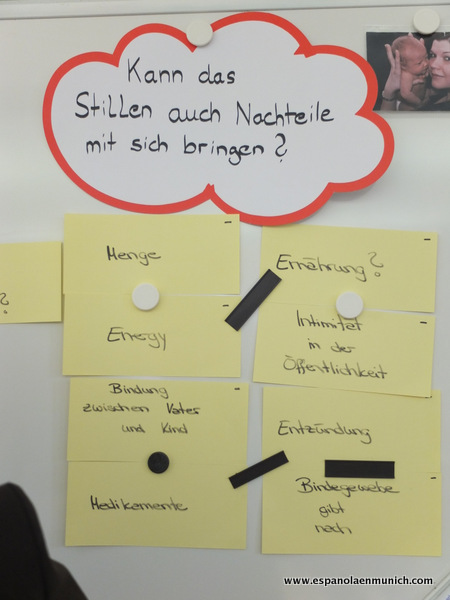 Kann das
Stillen auch Nachteile
mit sich bringen?
?
Menge
Energy
Ernährung?
Intimitet
in der
Öffentlichkeit
Bindung
zwischen Vater
und Kind
Medikamente
Entzündung
Bindegewebe
gibt
nach
www.espanolaenmunich.com